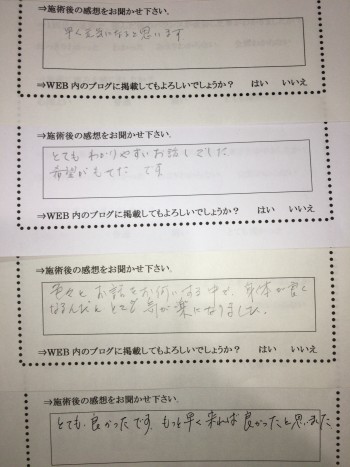 ⇒施術後の感想をお聞かせ下さい.
早く元気になると思います
⇒WEB内のブログに掲載してもよろしいでしょうか？ はい いいえ
⇒施術後の感想をお聞かせ下さい.
とても わかりやすいお話しでした
希望がもせた です
⇒WEB内のブログに掲載してもよろしいでしょうか？ はい いいえ
⇒施術後の感想をお聞かせ下さい.
色々と お話をお伺いする中で、身体が
なるんだんと 気が楽になりました.
⇒WEB内のブログに掲載してもよろしいでしょうか？ はい いいえ
⇒施術後の感想をお聞かせ下さい.
とても 良かったです。もっと早く来れば 良かったと思いました